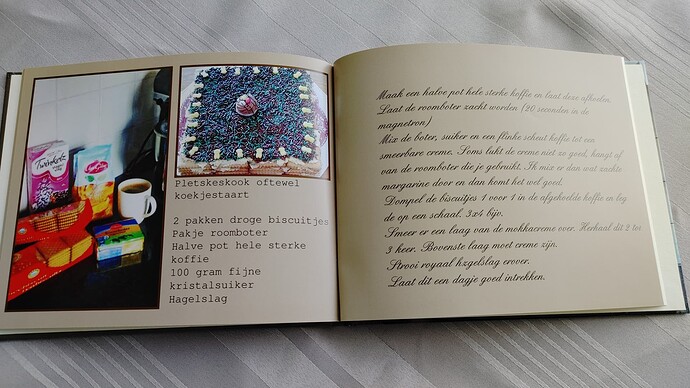 Pletskeskook oftewel
koekjestaart
2 pakken droge biscuitjes
Pakje roomboter
Halve pot hele sterke
koffie
100 gram fijne
kristalsuiker
Hagelslag
Maak een halve pot hele sterke koffie en laat deze afkoelen.
Laat de roomboter zacht worden (20 seconden in de
magnetron)
Mix de boter, suiker en een flinke scheut koffie tot een
smeerbare creme. Soms lukt de creme niet zo goed, hangt af
van de roomboter die je gebruikt. Ik mix er dan wat zachte
margarine door en dan komt het wel goed.
Dompel de biscuitjes 1 voor 1 in de afgekoelde koffie en leg
de op een schaal. 3x4 bijv.
Smeer er een laag van de mokkacreme over. Herhaal dit 2 tot
3 keer. Bovenste laag moet creme zijn.
Strooi royaal hzgelslag erover.
Laat dit een dagje goed intrekken.